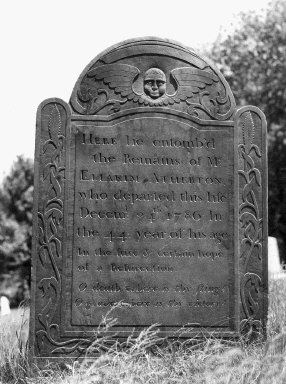 Here lie entomb'd
the Remains of Mr
Eliakim Atherton,
who departed this life
Decem 24th 1786 In
the 44 year of his age
In the sure & certain hope
of a Resurection
O death where is thy sting
O grave where is thy victory